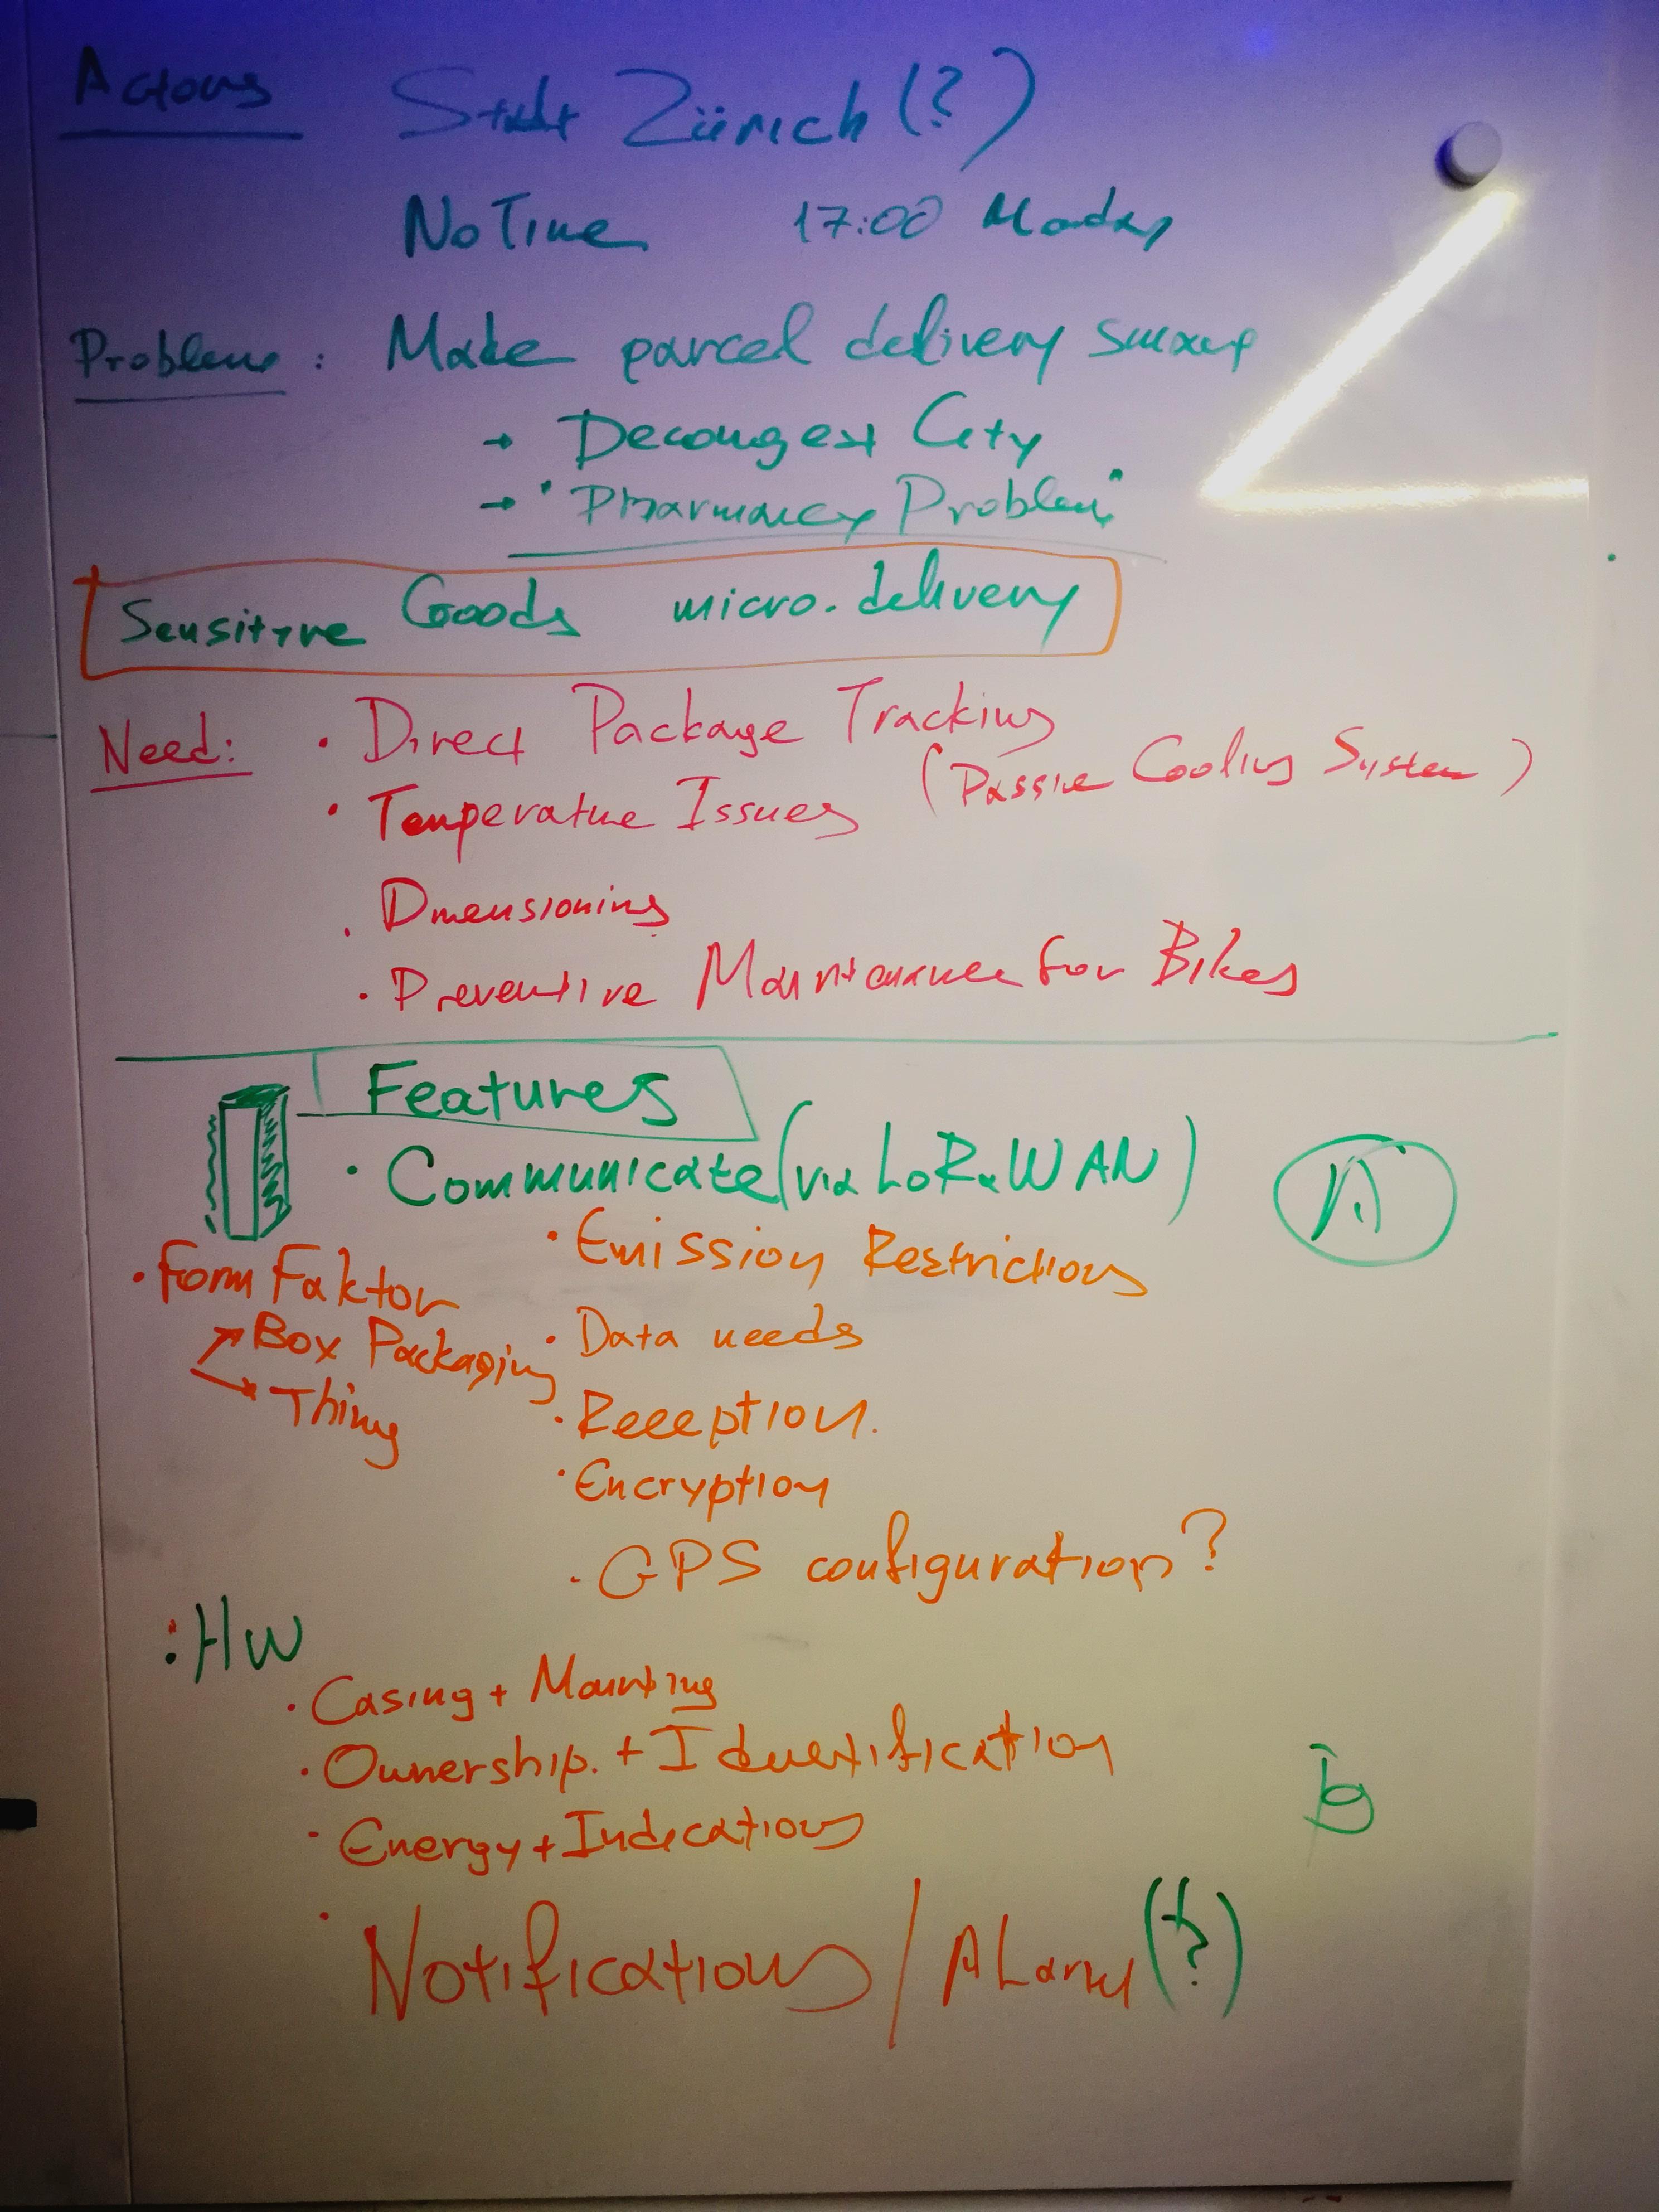 Actors Stadt Zürich (?)
NoTime 17:00 Monday
Problem: Make parcel delivery
→ Decongest City
→ "Pharmacy Problem"
Sensitive Goods micro-delivery
Need: • Direct Package Tracking
• Temperature Issues (Passive Cooling System)
• Dimensioning
• Preventive Maintenance for Bikes
Features
• Communicate (via LoRaWAN)
• Emission Restrictions
• Form Faktor
Box Packaging
Thing
• Data needs
• Reception.
• Encryption
• GPS configuration?
: HW
• Casing + Mounting
• Ownership. + Identification
• Energy + Indications
• Notifications / ALarm (?)